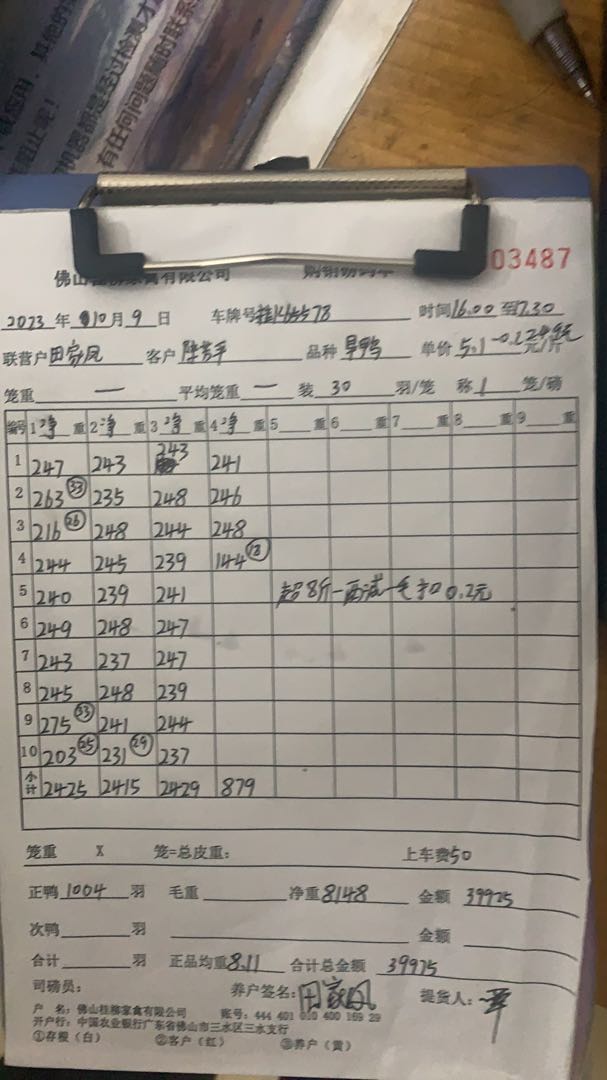 03487
佛山桂柳家禽有限公司
2023年10月9日 车牌号 时间16.00至17.30
联营户田家凤 客户 品种旱鸭 单价5.1-0.2 元/斤
笼重 一 平均笼重 一 装 30 羽/笼 称 1 笼/磅
编号 1净重 2净重 3净重 4净重 5重 6重 7重 8重 9重
1 247 243 243 241
2 263(33) 235 248 246
3 216(26) 248 244 248
4 244 245 239 144(18)
5 240 239 241 超8斤一两减一毛扣0.2元
6 249 248 247
7 243 237 247
8 245 248 239
9 275(33) 241 244
10 203(25) 231(29) 237
小计 2425 2415 2429 879
笼重 X 笼=总皮重: 上车费50
正鸭1004羽 毛重 净重8148 金额 39925
次鸭 羽 金额
合计 羽 正品均重8.11 合计总金额 39975
司磅员: 养户签名:田家凤 提货人:
户 名: 佛山桂柳家禽有限公司 账号: 444 401 010 400 169 29
开户行: 中国农业银行广东省佛山市三水区三水支行
①存根(白) ②客户(红) ③养户(黄)